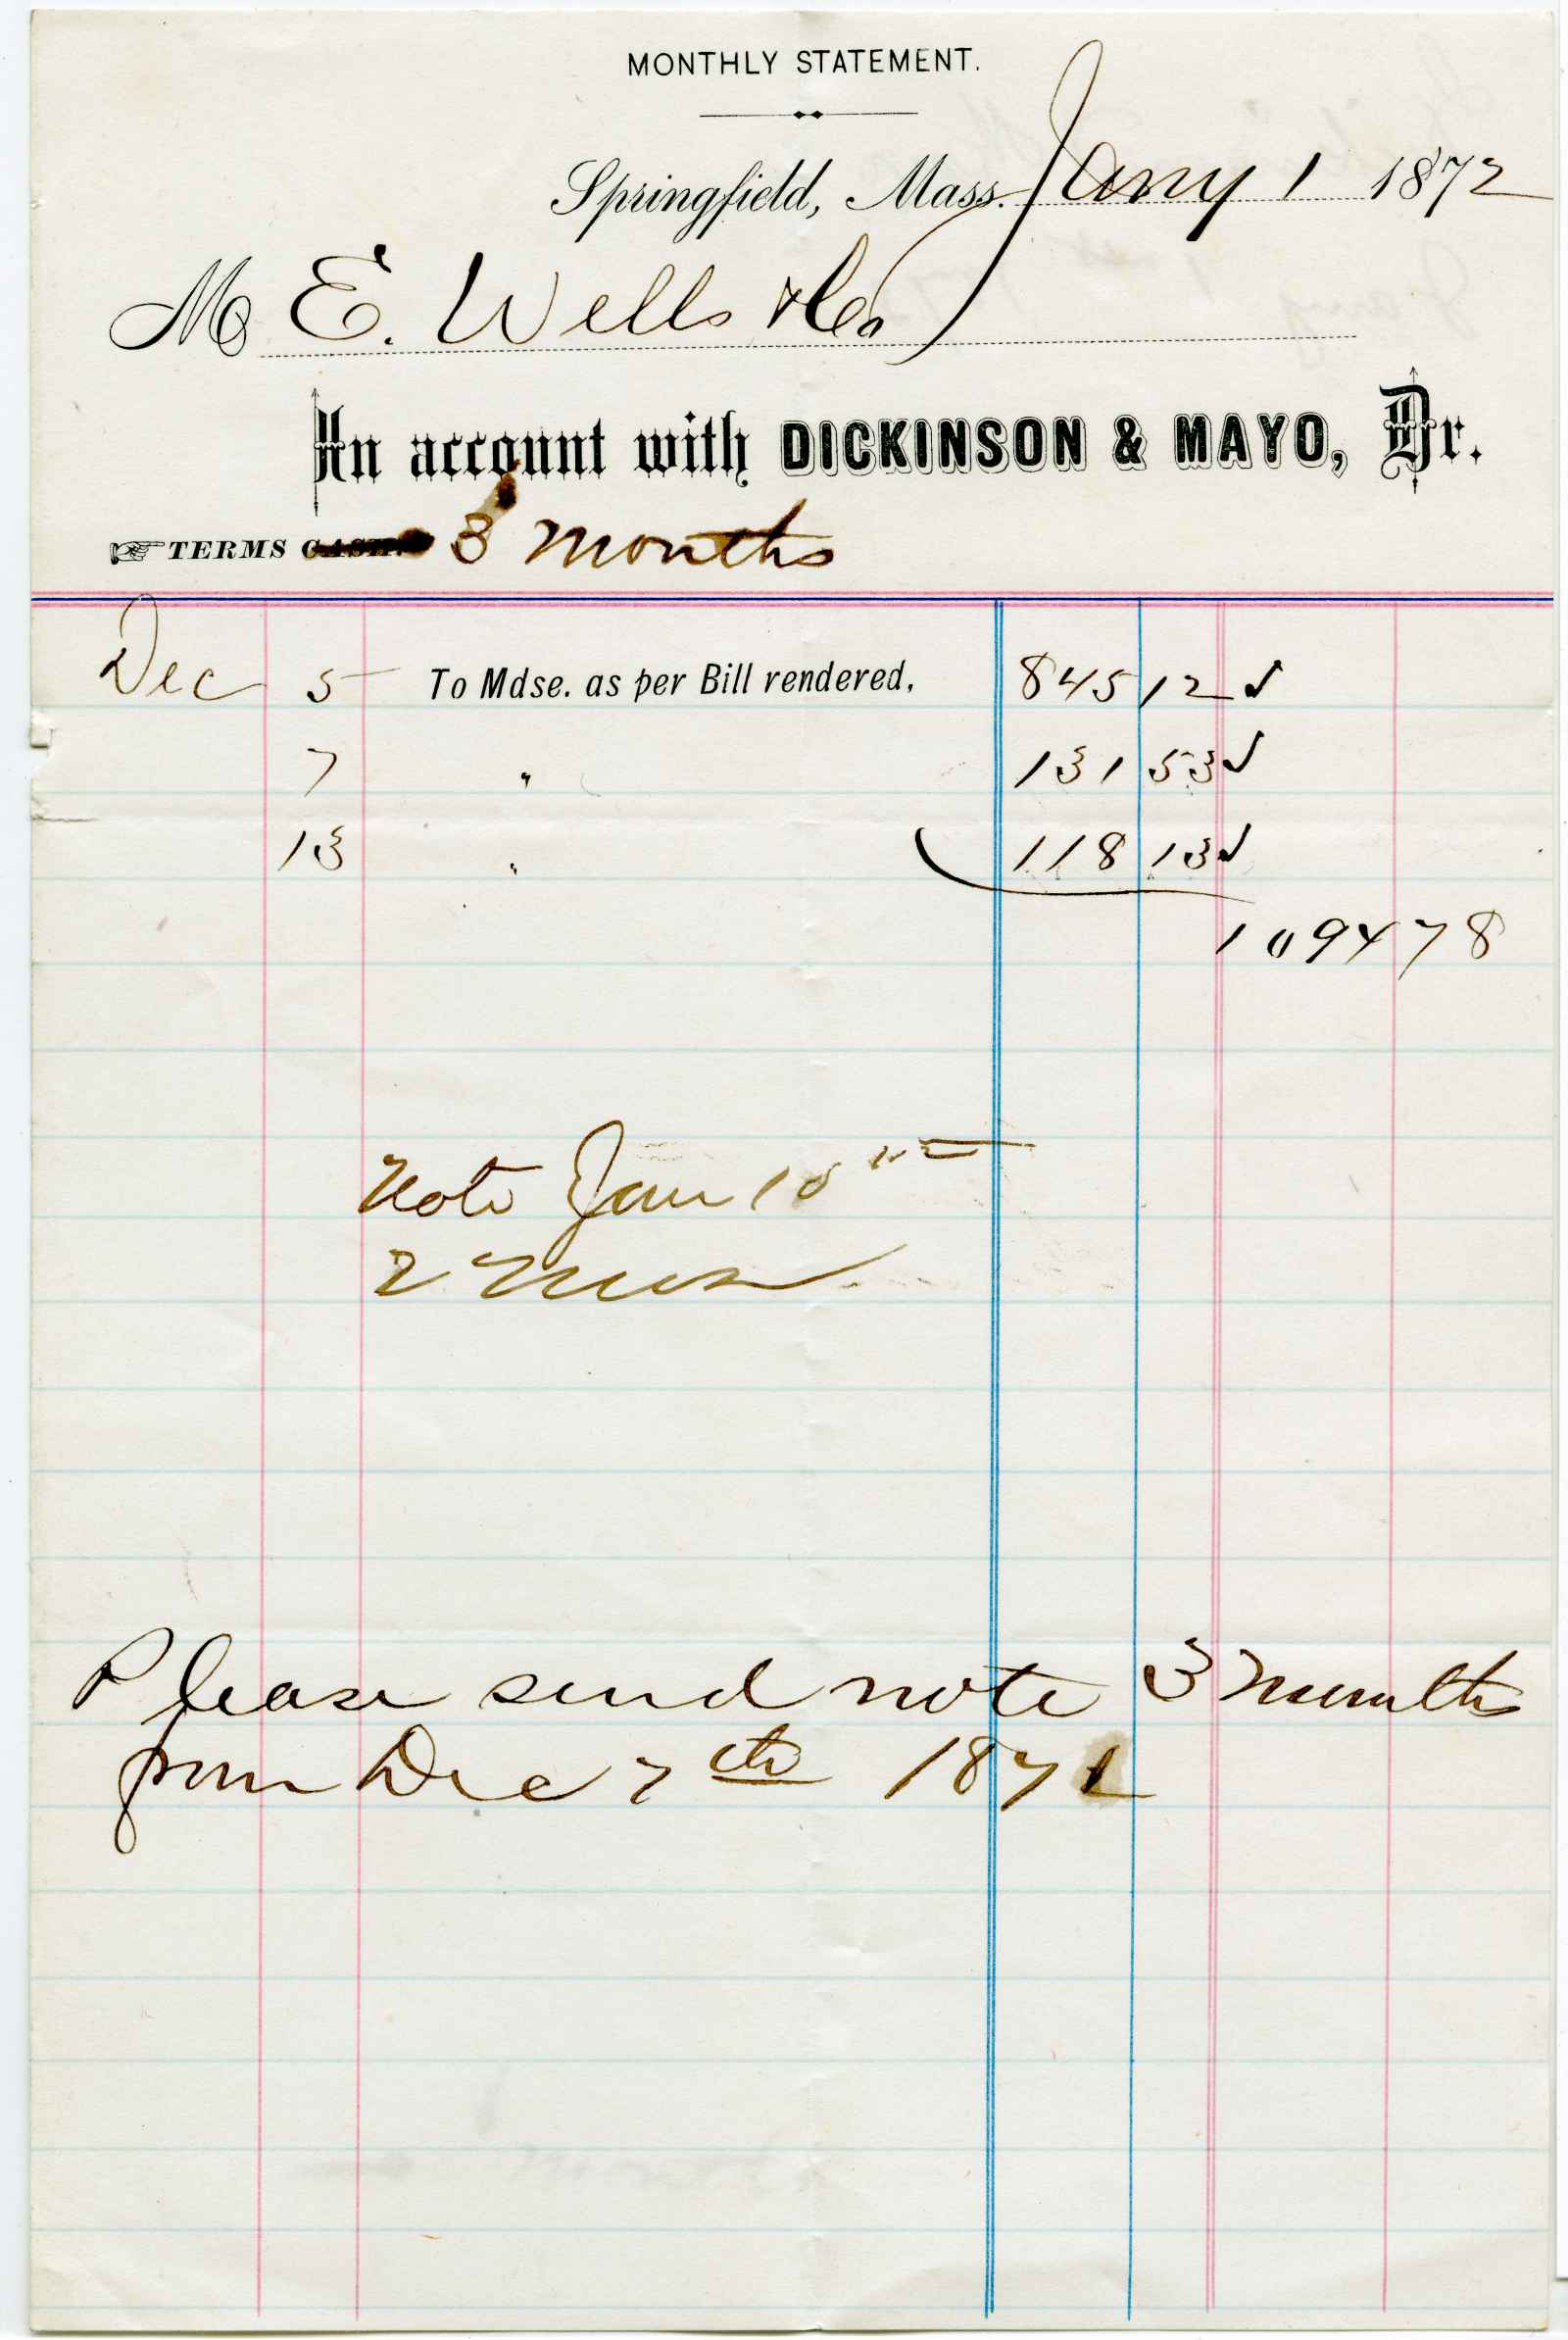 MONTHLY STATEMENT.
Springfield, Mass. Jany 1 1872
M E. Wells & Co
In account with DICKINSON & MAYO, Dr.
TERMS CASH. 3 Months
Dec 5 To Mdse. as per Bill rendered, 845 12 ✓
7 " 131 53 ✓
13 " 118 13 ✓
1094 78
Note Jan 10
2 Mos
Please send note 3 Months
from Dec 7th 1871